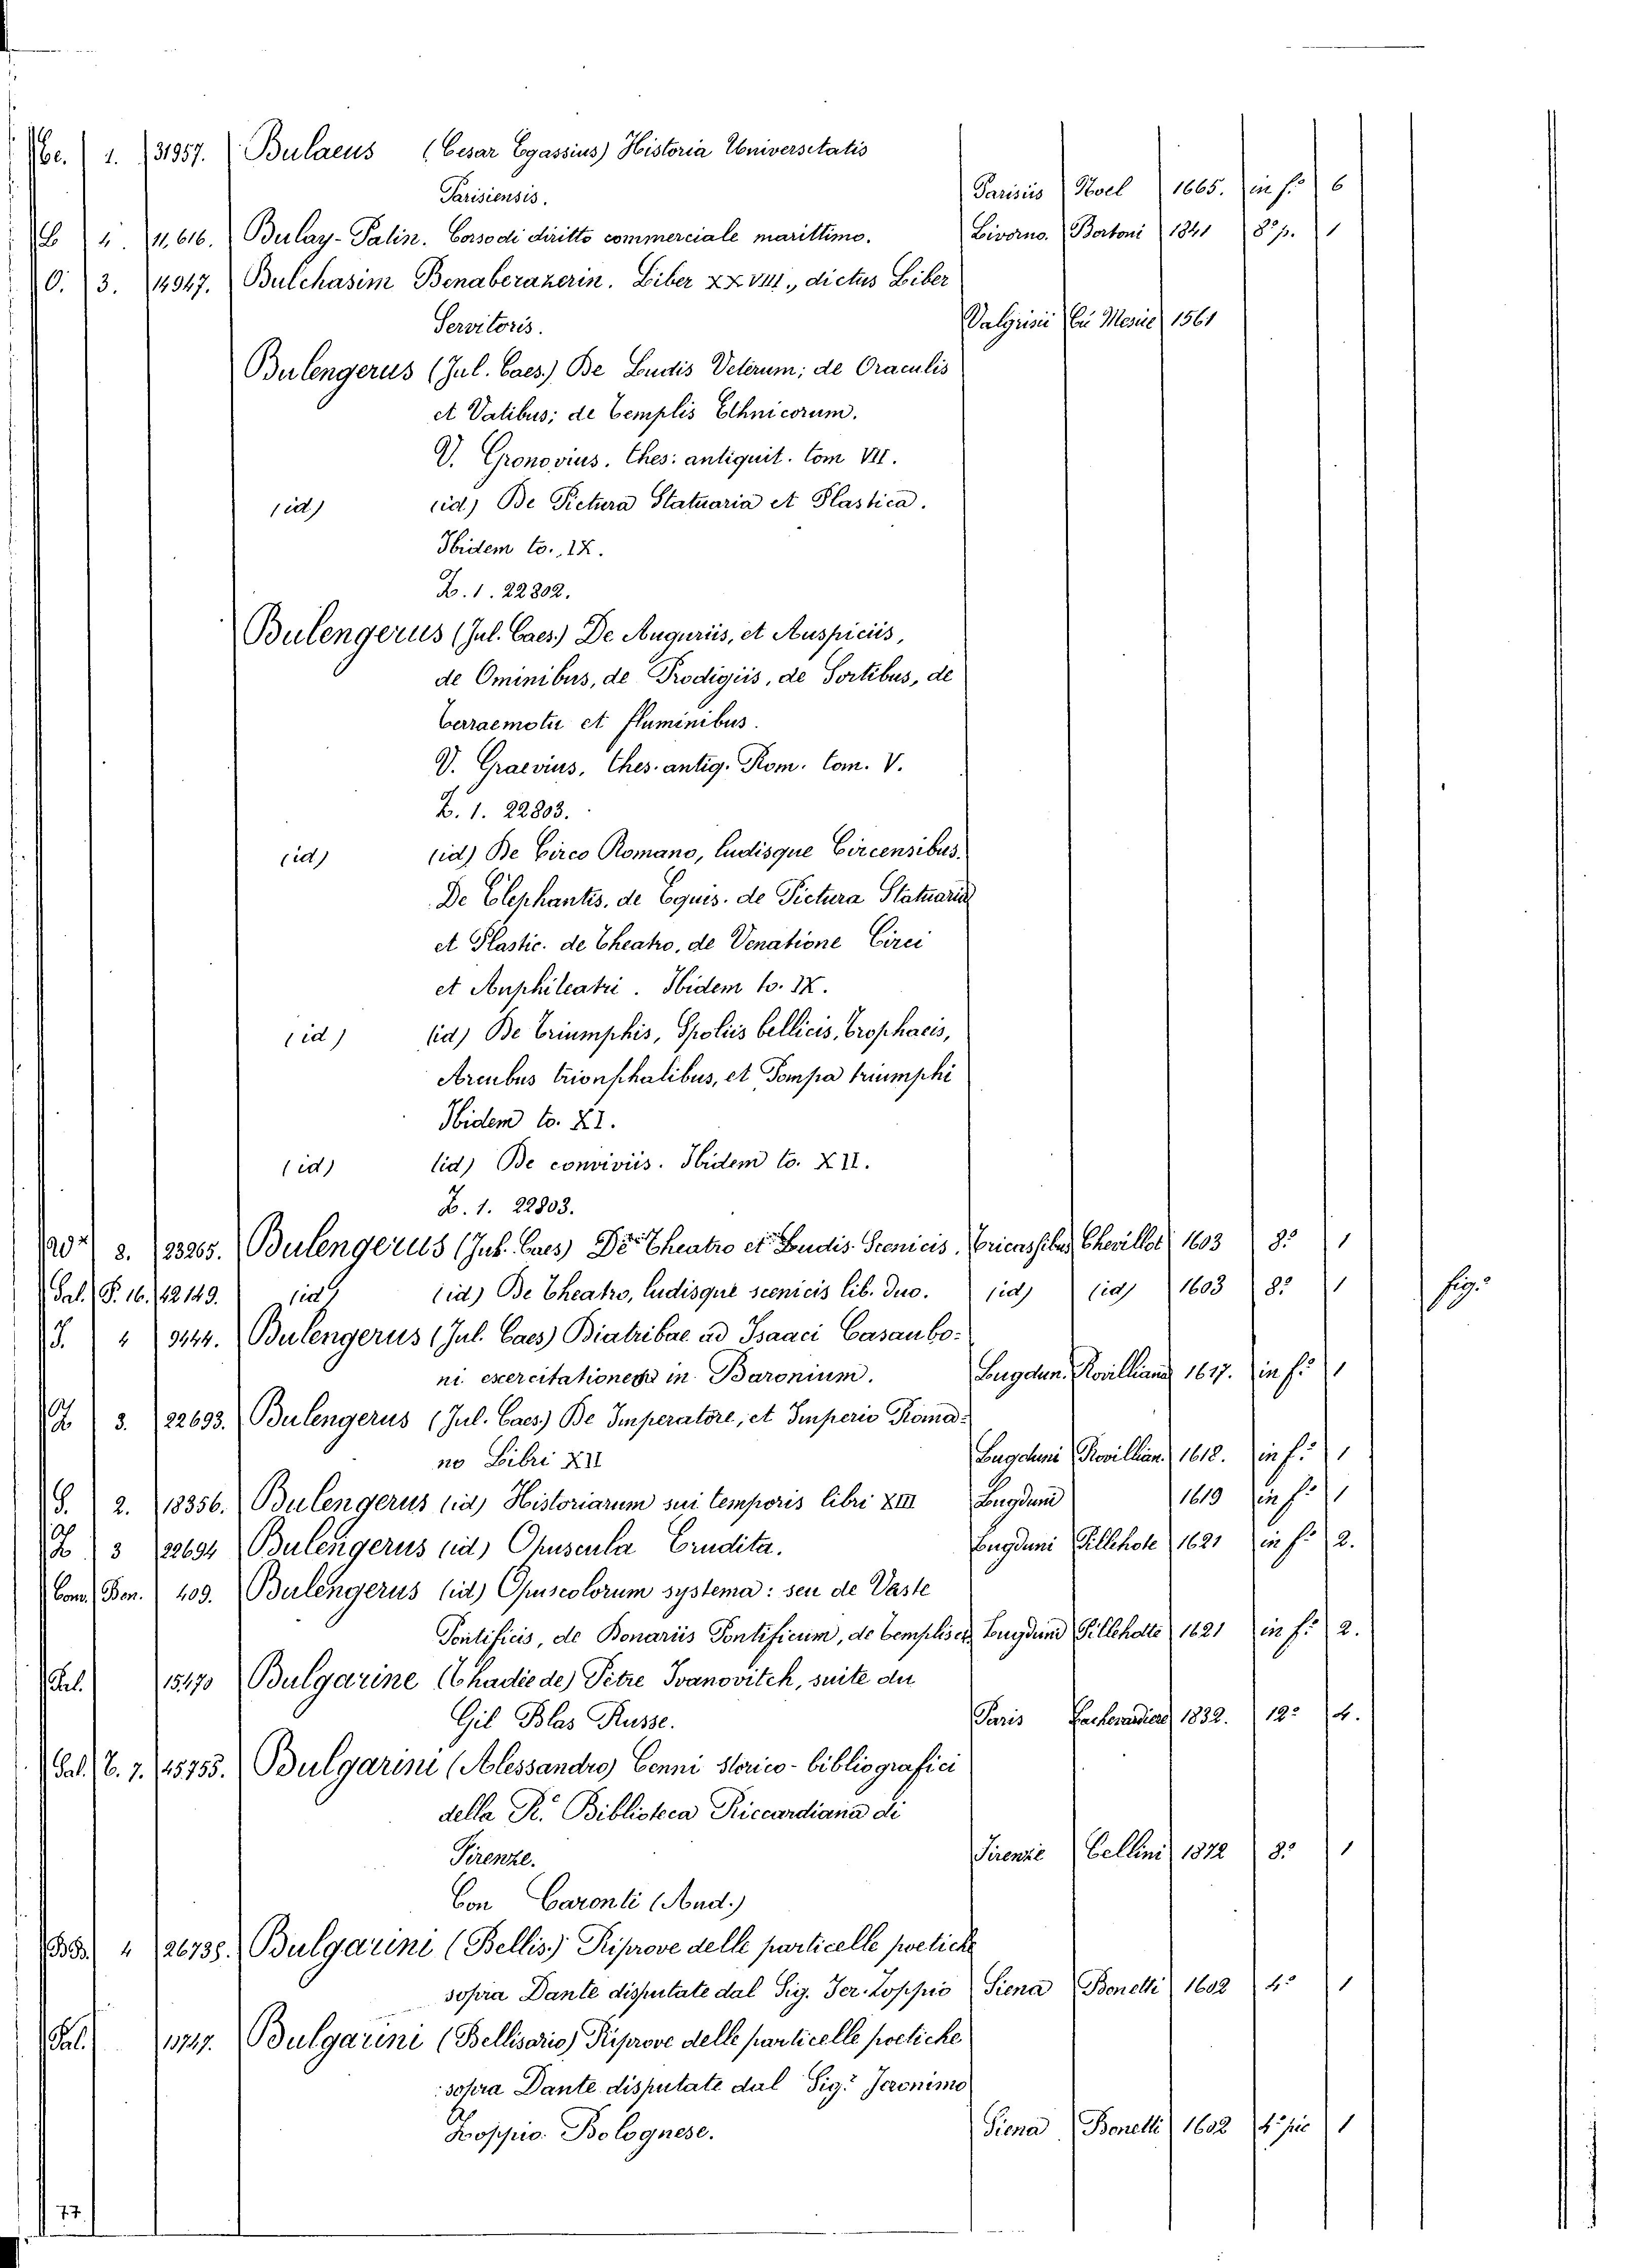 1. 31957. Bulaeus (Cesar Egassius) Historia Universitatis
Parisiensis. Parisiis Noel 1665. in f.º 6
4. 11,616. Bulay-Patin. Corso di diritto commerciale marittimo. Livorno. Bertoni 1841 8º p. 1
O. 3. 14947. Bulchasim Benaberazerin. Liber XXVIII., dictus Liber
Servitoris. Valgrisii 1561
Bulengerus (Jul. Caes.) De Ludis Veterum; de Oraculis
et Vatibus; de Templis Ethnicorum.
V. Gronovius. Thes: antiquit. tom VII.
(id) (id) De Pictura Statuaria et Plastica.
Ibidem to., IX.
Z. 1. 22802.
Bulengerus (Jul. Caes.) De Auguriis, et Auspiciis,
de Ominibus, de Prodigiis, de Sortibus, de
Terraemotu et fluminibus.
V. Graevius, Thes. antiq. Rom. tom. V.
Z. 1. 22803.
(id) (id) De Circo Romano, ludisque Circensibus.
De Elephantis, de Equis. de Pictura Statuaria
et Plastic. de Theatro, de Venatione Circi
et Anphiteatri. Ibidem to. IX.
(id) (id) De Triumphis, Spoliis bellicis, Trophaeis,
Arcubus trionphalibus, et Pompa triumphi
Ibidem to. XI.
(id) (id) De conviviis. Ibidem to. XII.
Z. 1. 22803.
3. 23265. Bulengerus (Jul. Caes) De Theatro et Ludis Scenicis. Tricassibus Chevillot 1603 8º 1
Pal. P. 16. 42149. (id) (id) De Theatro, ludisque scenicis lib. duo. (id) (id) 1603 8º 1 fig.º
J. 4 9444. Bulengerus (Jul. Caes) Diatribae ad Isaaci Casaubo-
ni exercitationes in Baronium. Lugdun. Rovilliand 1617. in f.º 1
Z 3. 22693. Bulengerus (Jul. Caes.) De Imperatore, et Imperio Roma-
no Libri XII Lugduni Rovillian. 1618. in f.º 1
S. 2. 18356. Bulengerus (id) Historiarum sui temporis libri XIII Lugduni 1619 in f.º 1
Z 3 22694 Bulengerus (id) Opuscula Erudita. Lugduni Pillehote 1621 in f.º 2.
Com. Ben. 409. Bulengerus (id) Opuscolorum systema: seu de Vaste
Pontificis, de Bonariis Pontificum, de templis et Lugduni Pillehotte 1621 in f.º 2.
Pal. 15470 Bulgarine (Thadie de) Pètre Ivanovitch, suite du
Gil Blas Russe. Paris Lachevardiere 1832. 12º 4.
Pal. C. 7. 45755. Bulgarini (Alessandro) Cenni storico-bibliografici
della R.ª Biblioteca Riccardiana di
Firenze. Firenze Cellini 1872 8º 1
Con Caronti (And.)
BB. 4 26738. Bulgarini (Bellis.) Riprove delle particelle poetiche
sopra Dante disputate dal Sig. Jer. Zoppio Siena Bonetti 1602 4º 1
Pal. 11747. Bulgarini (Bellisario) Riprove delle particelle poetiche
sopra Dante disputate dal Sig.r Jeronimo
Zoppio Bolognese. Siena Bonetti 1602 4º pic 1
77.